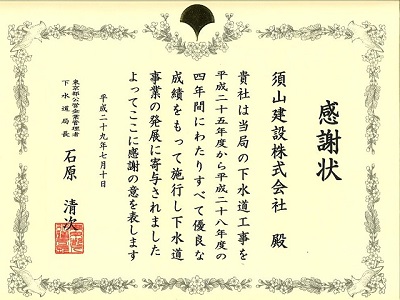 感謝状
須山建設株式会社 殿
貴社は当局の下水道工事を
平成二十五年度から平成二十八年度の
四年間にわたりすべて優良な
成績をもって施行し下水道
事業の発展に寄与されました
よってここに感謝の意を表します
平成二十九年七月十日
東京都公営企業管理者
下水道局長 石原 清次